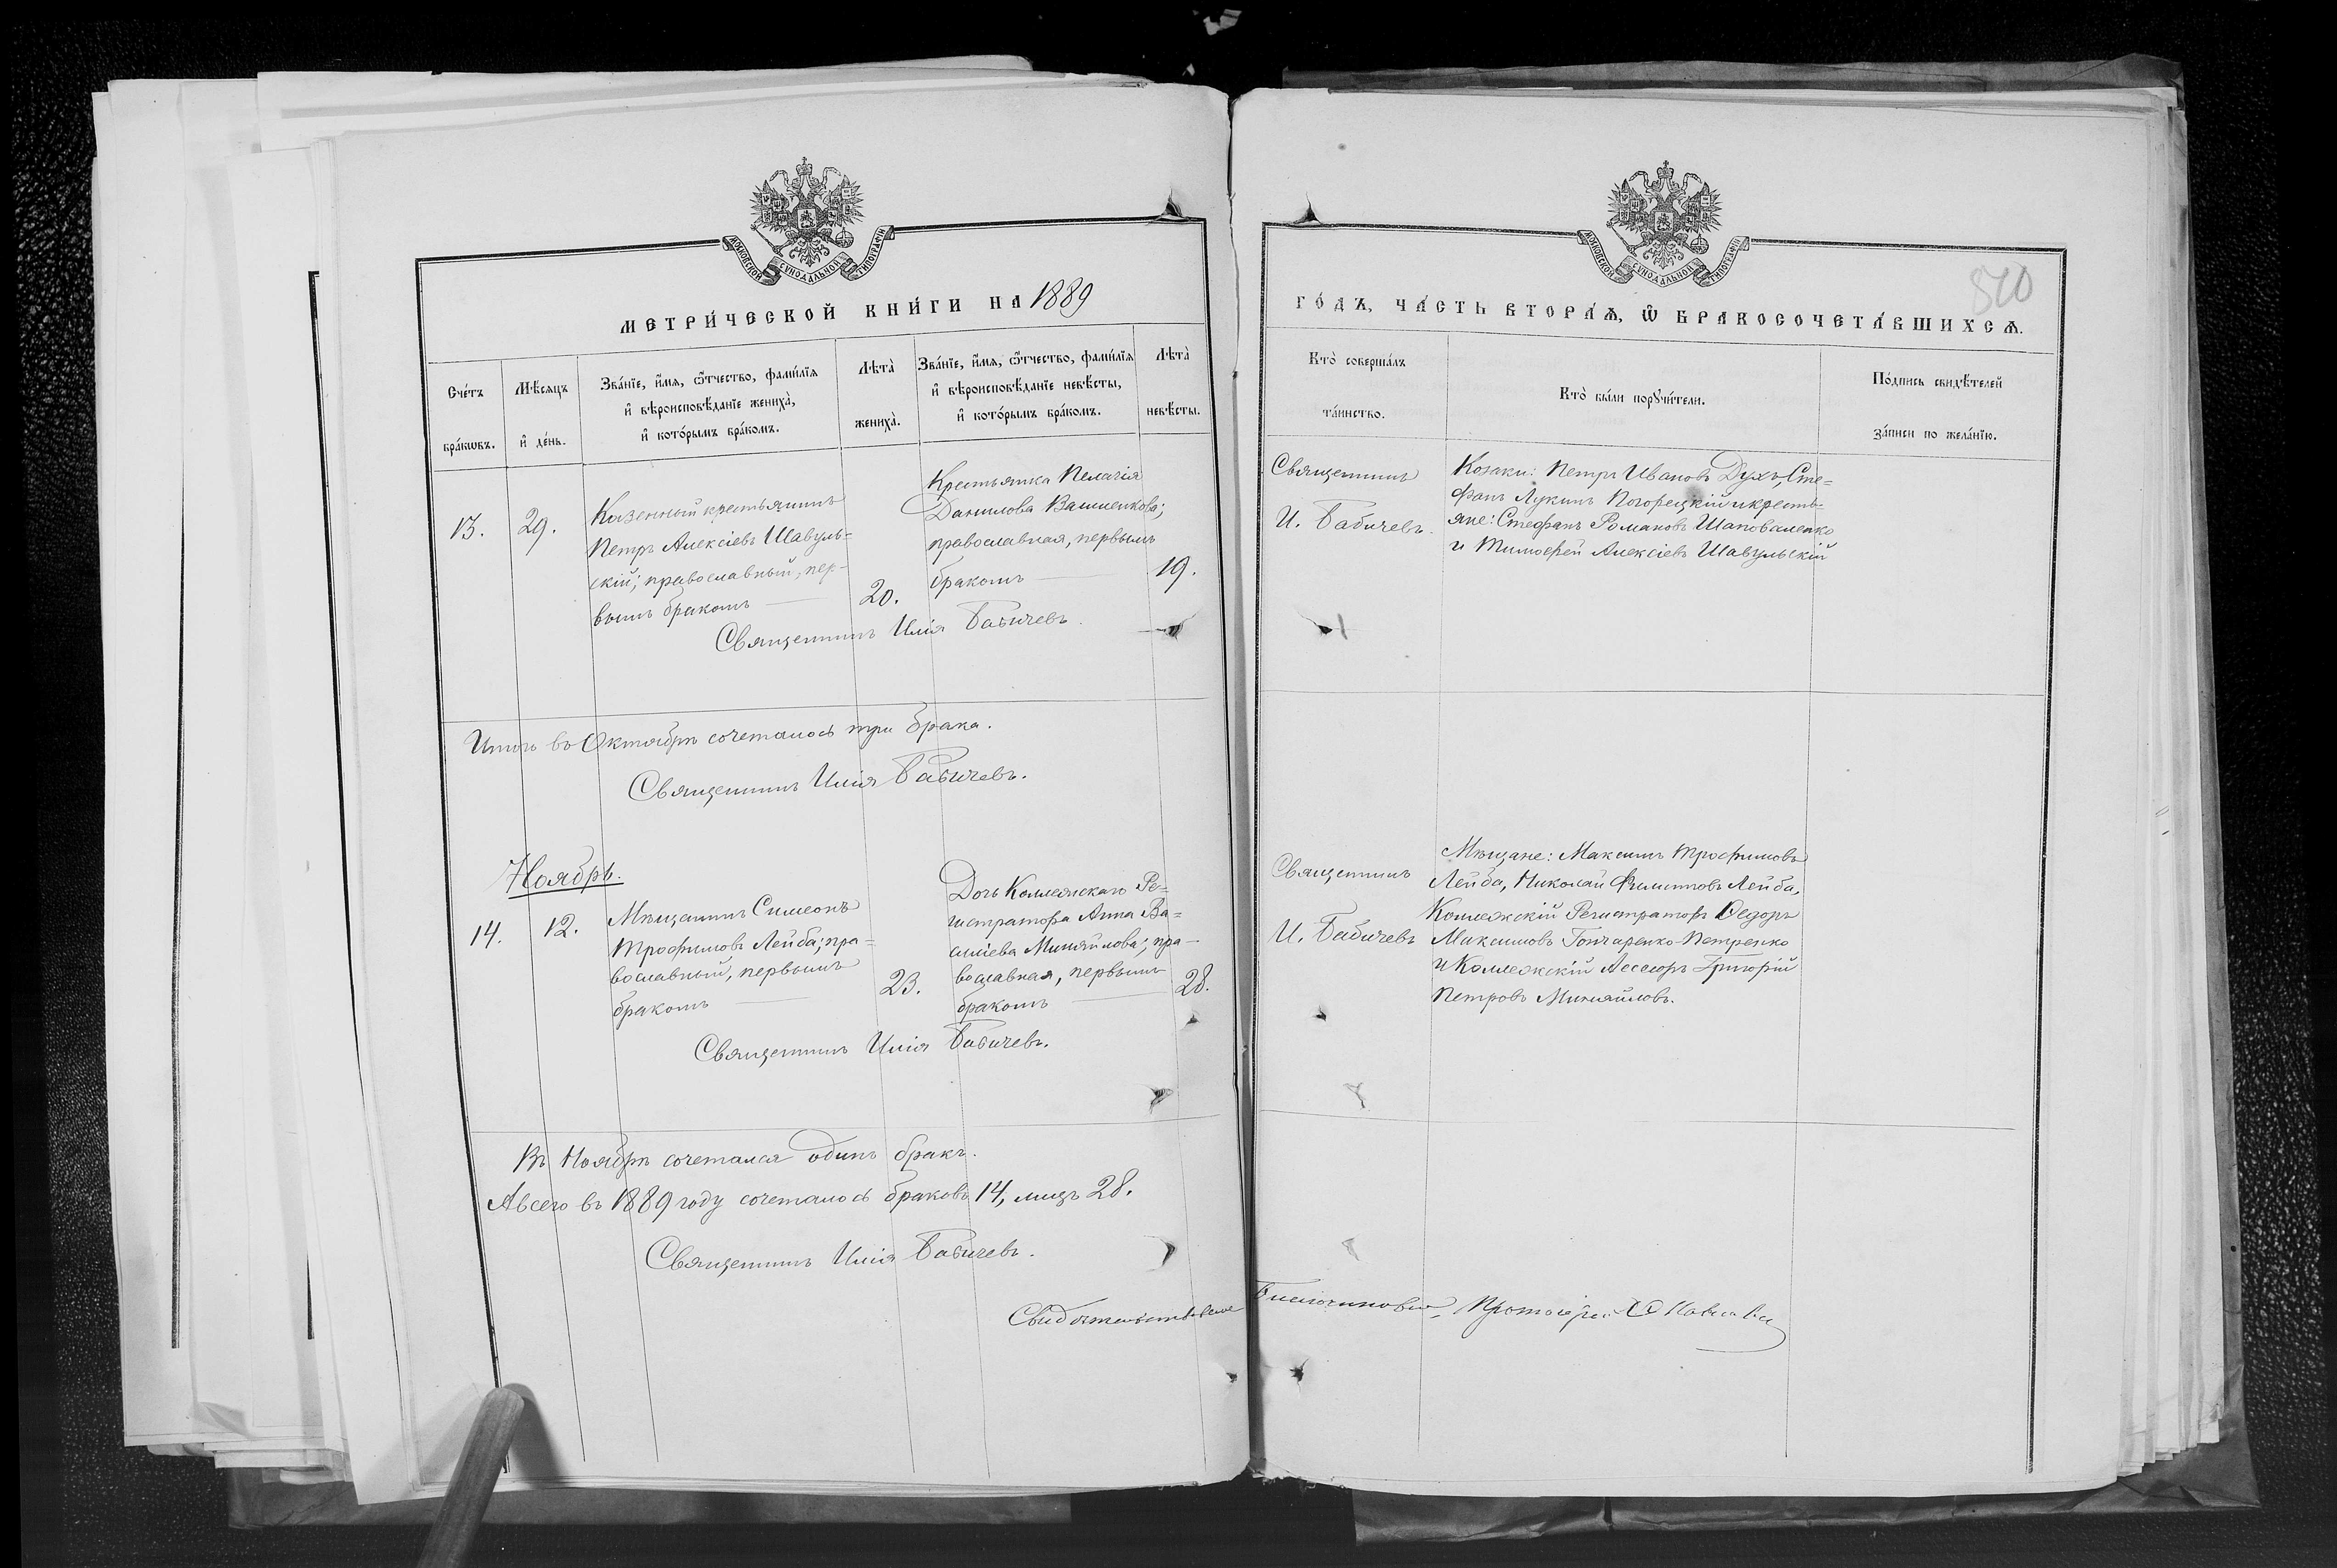 МОСКОВСКОЙ СѴНОДАЛЬНОЙ ТИПОГРАФІИ
МЕТРИ́ЧЕСКОЙ КНИ́ГИ НА 1889
Сче́тъ бра́кѡвъ.
Мѣ́сѧцъ и҆ де́нь.
Зва́нїе, и҆́мѧ, ѻ҆́тчество, фами́лїѧ
и҆ вѣроисповѣ́данїе жениха̀,
и҆ кото́рымъ бра́комъ.
Лѣта̀ жениха̀.
Зва́нїе, и҆́мѧ, ѻ҆́тчество, фами́лїѧ
и҆ вѣроисповѣ́данїе невѣ́сты,
и҆ кото́рымъ бра́комъ.
Лѣта̀ невѣ́сты.
13.
29.
Казенный крестьянинъ
Петръ Алексіевъ Шавуль=
скій; православный, пер-
вымъ бракомъ
20.
Крестьянка Пелагія
Данилова Вашненкова;
православная, первымъ
бракомъ
19.
Священникъ Илія Бабичевъ.
Итого въ Октябрѣ сочеталось три брака.
Священникъ Илія Бабичевъ.
Ноябрь.
14.
12.
Мѣщанинъ Симеонъ
Трофимовъ Лейба; пра=
вославный, первымъ
бракомъ
23.
Дочь Коллежскаго Ре=
гистратора Анна Ва=
силіева Миняйлова; пра-
вославная, первымъ
бракомъ
28.
Священникъ Илія Бабичевъ.
Въ Ноябрѣ сочетался одинъ бракъ.
А всего въ 1889 году сочеталось браковъ 14, лицъ 28.
Священникъ Илія Бабичевъ.
МОСКОВСКОЙ СѴНОДАЛЬНОЙ ТИПОГРАФІИ
ГО́ДЪ, ЧА́СТЬ ВТОРА́Ѧ, Ѡ҆ БРАКОСОЧЕТА́ВШИХСѦ.
Кто̀ соверша́лъ
та́инство.
Кто̀ бы́ли порꙋчи́тели.
По́дпись свидѣ́телей
за́писи по жела́нїю.
Священникъ
И. Бабичевъ.
Козаки: Петръ Ивановъ Духъ, Сте=
фанъ Лукинъ Погорецкій и кресть-
яне: Стефанъ Романовъ Шаповаленко
и Тимофей Алексіевъ Шавульскій
Священникъ
И. Бабичевъ
Мѣщане: Максимъ Трофимовъ
Лейба, Николай Филиповъ Лейба,
Коллежскій Регистраторъ Ѳедоръ
Максимовъ Гончаренко-Петренко
и Коллежскій Ассесоръ Григорій
Петровъ Миняйловъ.
Протоіерей